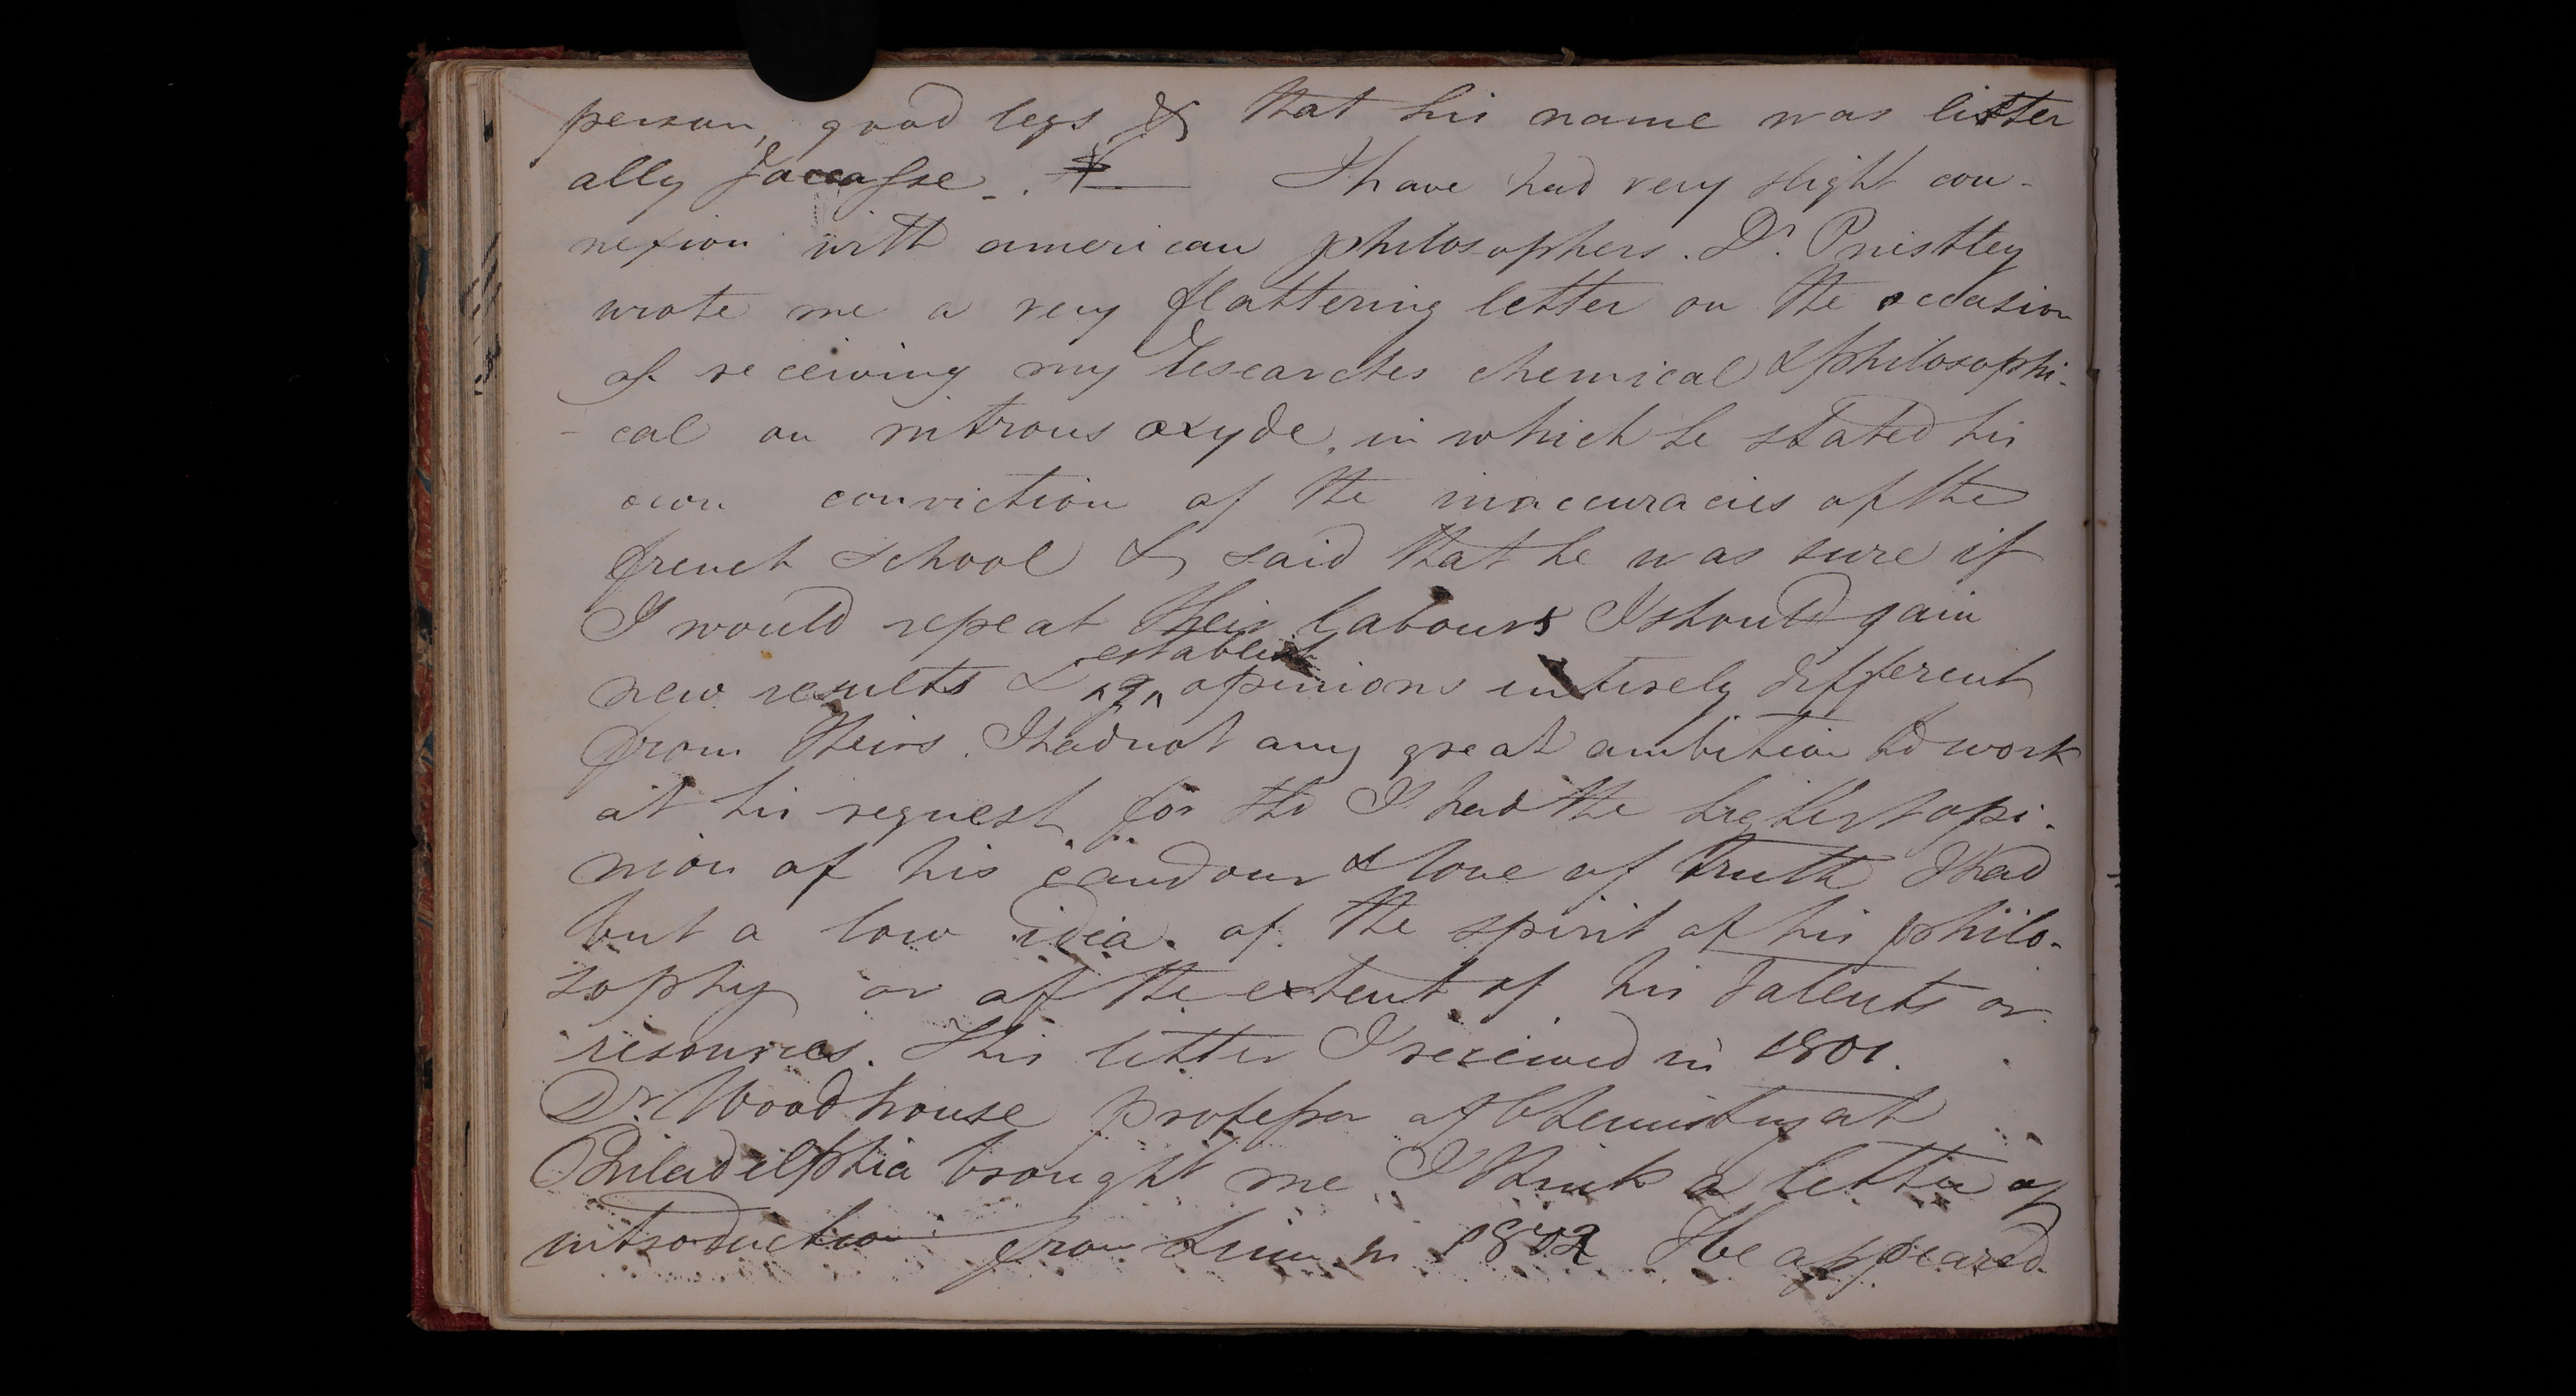 person, good legs & that his name was litter
ally Jaccasse_. ⁎— I have had very slight con-
nexion with american philosophers. Dr. Pristley
wrote me a very flattering letter on the occasion
of receiving my researches chemical & philosophi-
cal on nitrous oxyde, in which he stated his
own conviction of the inaccuracies of the
french school & said that he was sure if
I would repeat their labours I should gain
establish
new results & opinions entirely different
from theirs. I had not any great ambition to work
at his request, for tho I had the highest opi-
nion of his candour & love of truth I had
but a low idea of the spirit of his philo-
sophy or of the extent of his talents or
resources. This letter I received in 1801.
Dr. Woodhouse professor of Chemistry at
Philadelphia brought me I think a letter of
introduction from him in 1802 He appeared